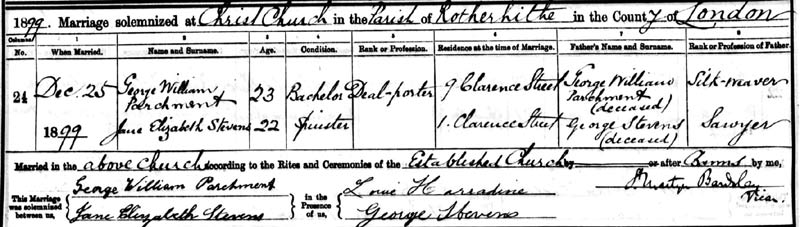 1899. Marriage solemnized at Christ Church in the Parish of Rotherhithe in the County of London
Columns 1 2 3 4 5 6 7 8
No. When Married. Name and Surname. Age. Condition. Rank or Profession. Residence at the time of Marriage. Father's Name and Surname. Rank or Profession of Father.
24 Dec. 25 George William Parchment 23 Bachelor Deal-porter 9 Clarence Street George William Parchment (deceased) Silk-weaver
1899 Jane Elizabeth Stevens 22 Spinster 1. Clarence Street George Stevens (deceased) Sawyer
Married in the above Church according to the Rites and Ceremonies of the Established Church by or after Banns by me,
This Marriage was solemnized between us, George William Parchment in the Presence of us, Louie Harradine Martyn Bardsley
Jane Elizabeth Stevens George Stevens Vicar.